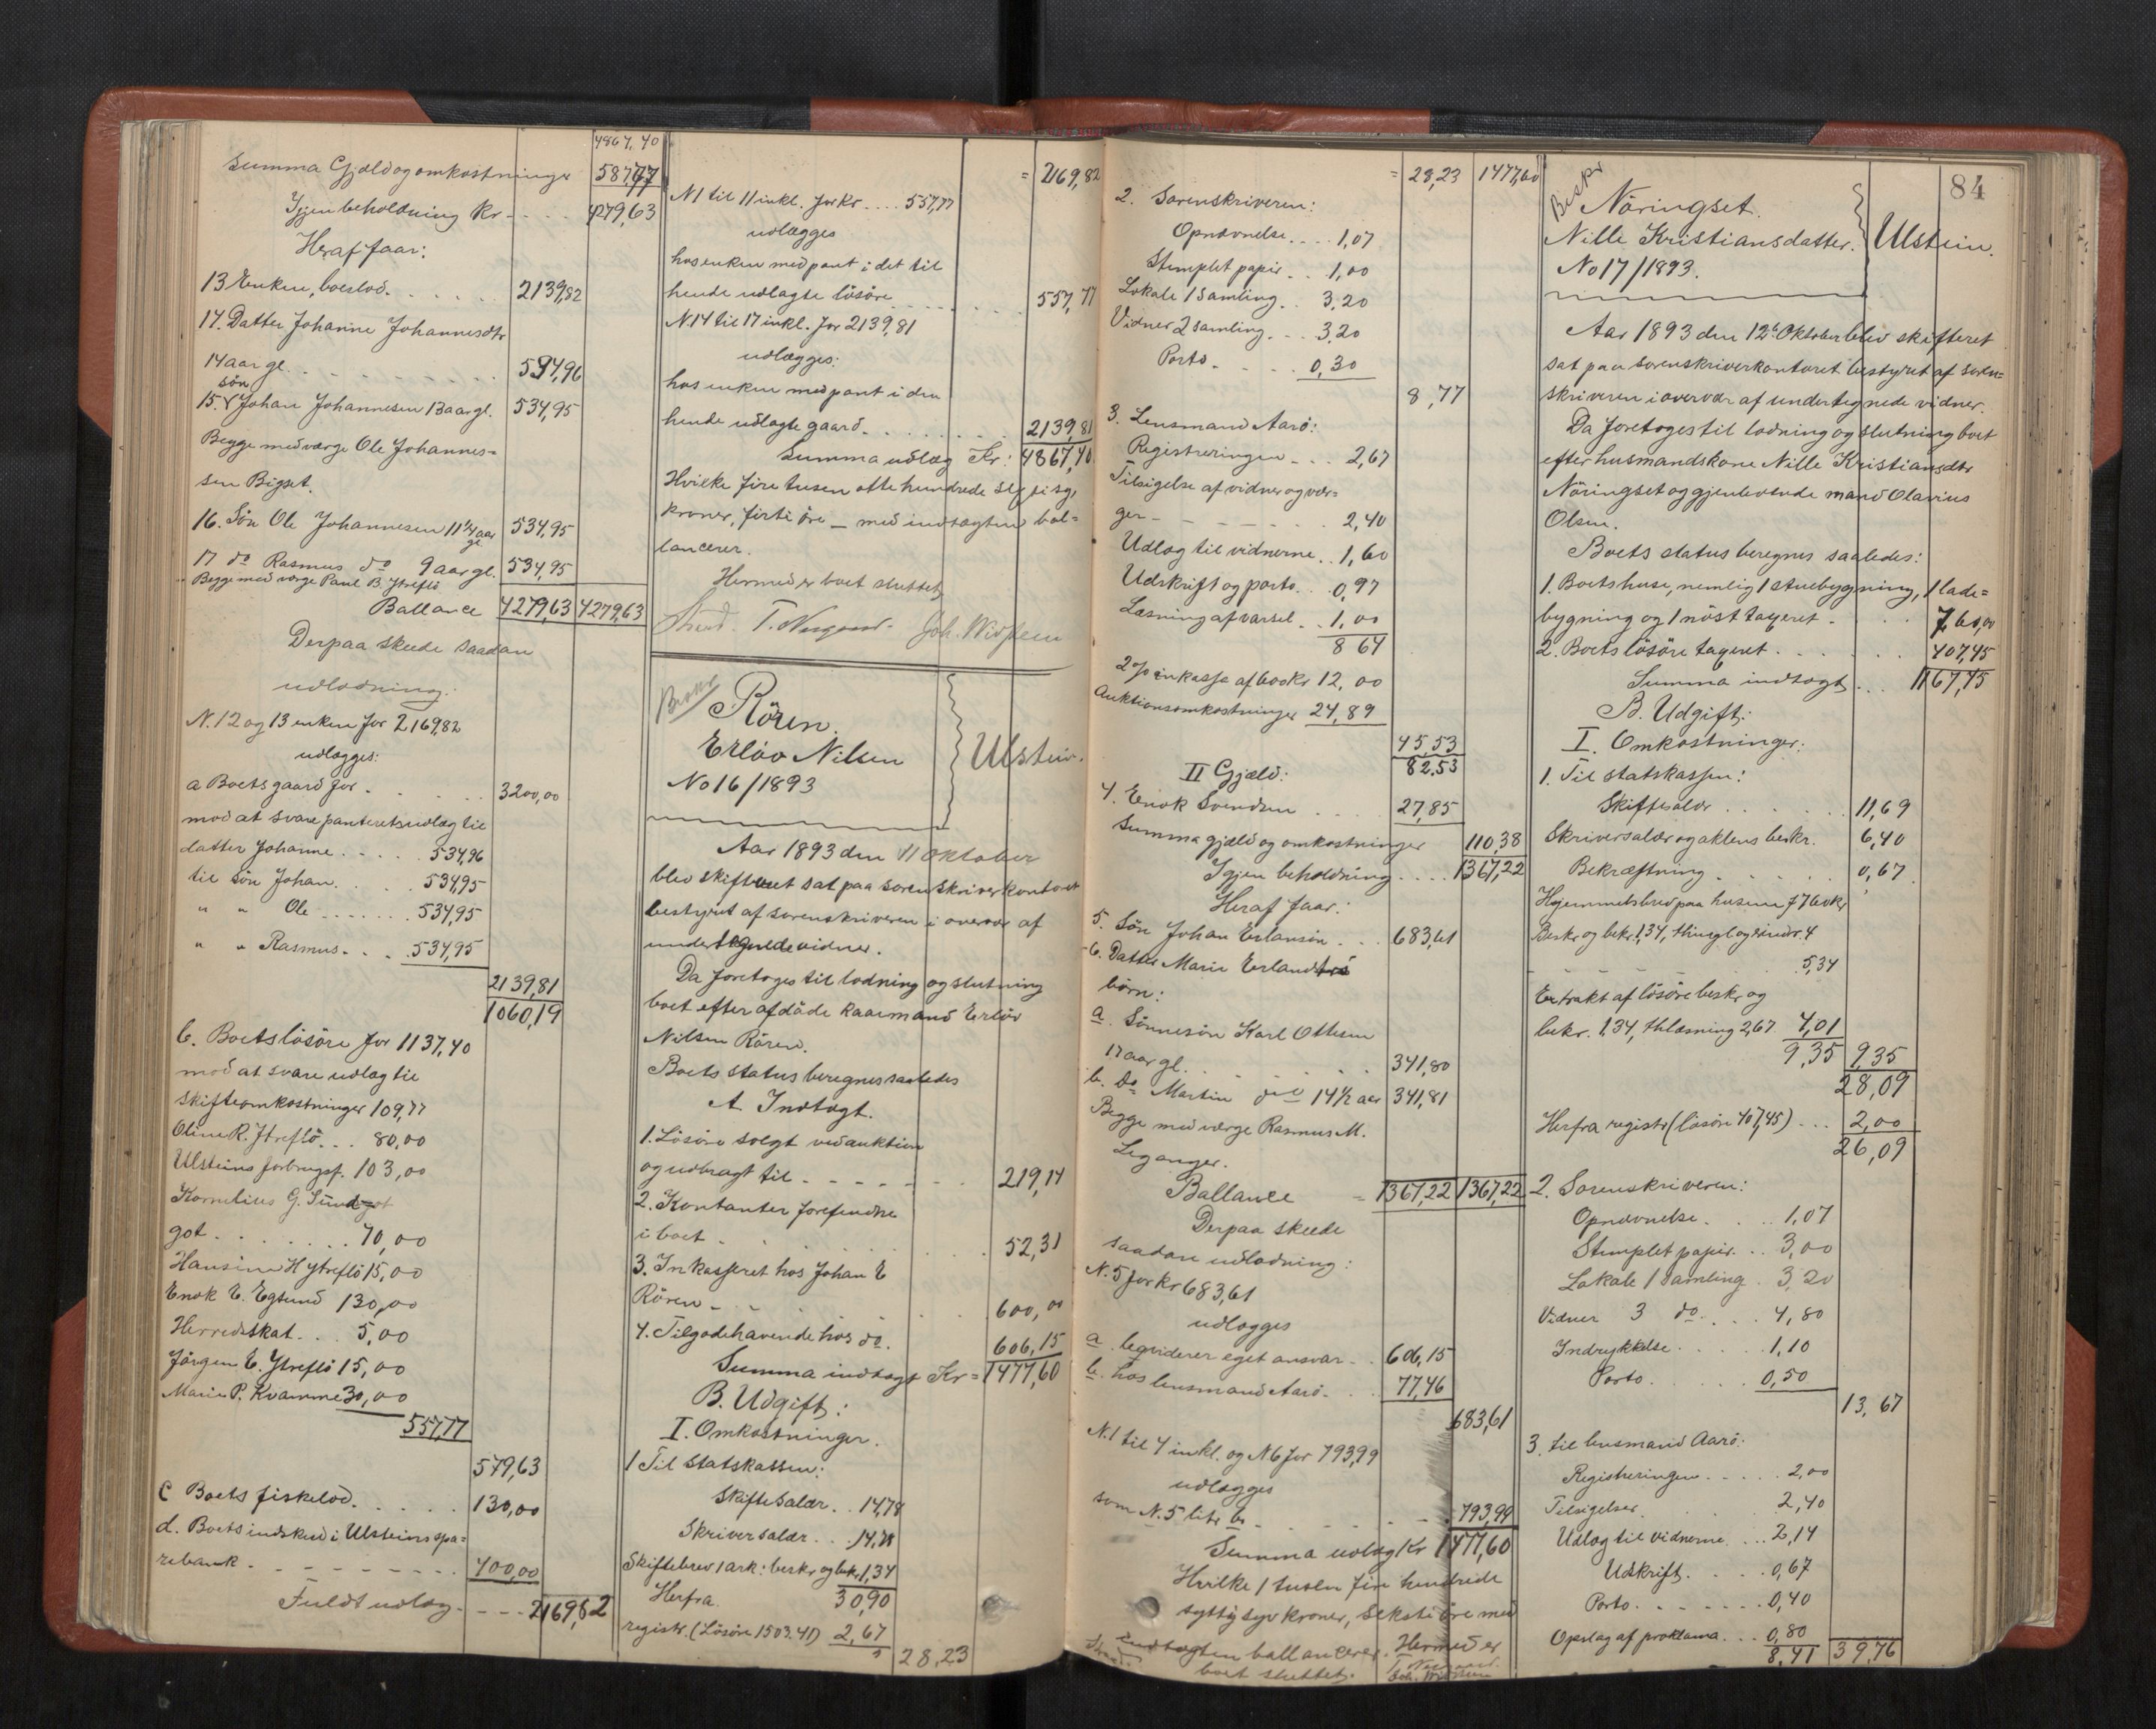 4867,40
Summa Gjæld og omkostninger 587,77
Igjen beholdning Kr 4279,63
Heraf faar:
13 Enken, boeslod. 2139,82
14. Datter Johanne Johannesdtr
14 aar gl. 534,96
søn
15. Johan Johannesen 13 aar gl. 534,95
Begge med værge Ole Johannes=
sen Bigset.
16. Søn Ole Johannesen 11 1/4 aar gl 534,95
17 do Rasmus do 9 aar gl. 534,95
Begge med værge Paul B. Ytreflø
Ballance 4279,63 4279,63
Derpaa skeede saadan
udlodning:
N. 12 og 13 enken for 2169,82
udlægges:
a Boets gaard for 3200,00
mod at svare panteretsudlæg til
datter Johanne 534,96
til Søn Johan 534,95
" " Ole 534,95
" " Rasmus 534,95
2139,81
1060,19
b. Boets løsøre for 1137,40
mod at svare udlæg til
skifteomkostninger 109,77
Oline R. Ytreflø 80,00
Ulsteins forbrugsf. 103,00
Kornelius G. Sund
got 70,00
Hansine H Ytreflø 15,00
Enok E. Egsund 130,00
Herredskat 5,00
Jørgen E. Ytreflø 15,00
Marie P. Kvamme 30,00
557,77
579,63
c Boets fiskelod. 130,00
d. Boets indskud i Ulsteins spa=
rebank 400,00
Fuldt udlæg 2169,82
= 2169,82
N 1 til 11 inkl. for Kr 557,77
udlægges
hos enken med pant i det til
hende udlagte løsøre 557,77
N. 14 til 17 inkl. for 2139,81
udlægges:
hos enken med pant i den
hende udlagte gaard 2139,81
Summa udlæg Kr: 4867,40
Hvilke fire tusen otte hundrede
kroner, firti øre — med indtægten bal=
lancerer.
Hermed er boet sluttet
Beskr
Rören.
Erlöv Nilsen
No 16/1893
Ulstein.
Aar 1893 den 11 Oktober
blev skifteret sat paa sorenskriverkontoret
bestyret af sorenskriveren i overvær af
undertegnede vidner.
Da foretoges til lodning og slutning
boet efter afdøde kaarmand Erløv
Nilsen Rören.
Boets status beregnes saaledes
A Indtægt.
1. Løsøre solgt ved auktion
og udbragt til 219,14
2. Kontanter forefundne
i boet 52,31
3. Inkasseret hos Johan E
Rören 600,00
4. Tilgodehavende hos do. 606,15
Summa indtægt Kr = 1477,60
B. Udgift:
I. Omkostninger.
1 Til statskassen:
Skiftesalær 14,78
Skriversalær 14,78
Skiftebrev 1 ark: beskr og bekr 1,34
30,90
Herfra
registr. (Løsøre 1503.41) 2,67
28,23
= 28,23 1477,60
2. Sorenskriveren:
Opnævnelse 1,07
Stemplet papir 1,00
Lokale 1 samling 3,20
Vidner 2 samling 3,20
Porto 0,30
8,77
3. Lensmand Aarö:
Registreringen 2,67
Tilsigelse af vidner og vær=
ger 2,40
Udlæg til vidnerne 1,60
Udskrift og porto 0,97
Læsning af varsel 1,00
8 64
2 % inkasso af 600 kr 12,00
Auktionsomkostninger 24,89
45,53
82,53
II Gjæld:
4. Enok Svendsen 27,85
Summa gjæld og omkostninger 110,38
Igjen beholdning 1367,22
Heraf faar:
5. Søn Johan Erlansen 683,61
6. Datter Marie Erlands
børn:
a. Sønnesøn Karl Ottesen
17 aar gl. 341,80
b. do Martin do 14 1/2 aar 341,81
Begge med værge Rasmus M.
Leganger.
Ballance = 1367,22 1367,22
Derpaa skeede
saadan udlodning:
N. 5 for kr 683,61
udlægges
a. leqviderer eget ansvar 606,15
b. hos lensmand Aarö 77,46
683,61
N. 1 til 4 inkl. og N 6 for 793,99
udlægges
som N. 5 litr b. 793,99
Summa udlæg Kr 1477,60
Hvilke 1 tusen fire hundrede
sytti syv kroner, seksti øre med
indtægten ballancerer. Hermed er
boet sluttet.
84
Beskr
Nöringset.
Nille Kristiansdatter.
No 17/1893.
Ulstein.
Aar 1893 den 12te Oktober blev skifteret
sat paa sorenskriverkontoret bestyret af soren=
skriveren i overvær af undertegnede vidner.
Da foretoges til lodning og slutning boet
efter husmandskone Nille Kristiansdtr
Nöringset og gjenlevende mand Olavius
Olsen.
Boets status beregnes saaledes:
1. Boets huse, nemlig 1 stuebygning, 1 lade=
bygning og 1 nöst taxeret 760,00
2. Boets løsøre taxeret 407,45
Summa indtægt 1167,45
B. Udgift:
I. Omkostninger:
1. Til statskassen:
Skiftesalær 11,69
Skriversalær og aktens beskr. 6,40
Bekræftning 0,67
Hjemmelsbrev paa husene f 760 kr
Beskr og bekr. 1,34, thingl og 4
5,34
Extrakt af løsøre beskr og
bekr. 1.34, thlæsning 2,67 4,01
9,35 9,35
28,09
Herfra registr (løsøre 407,45) 2,00
26,09
2. Sorenskriveren:
Opnævnelse 1,07
Stemplet papir 3,00
Lokale 1 samling 3,20
Vidner 3 do 4,80
Indrykkelse 1,10
Porto 0,50
13,67
3. til lensmand Aarö:
Registreringen 2,00
Tilsigelser 2,40
Udlæg til vidnerne 2,14
Udskrift 0,67
Porto 0,40
Opslag af proklama 0,80
8,41 39,76